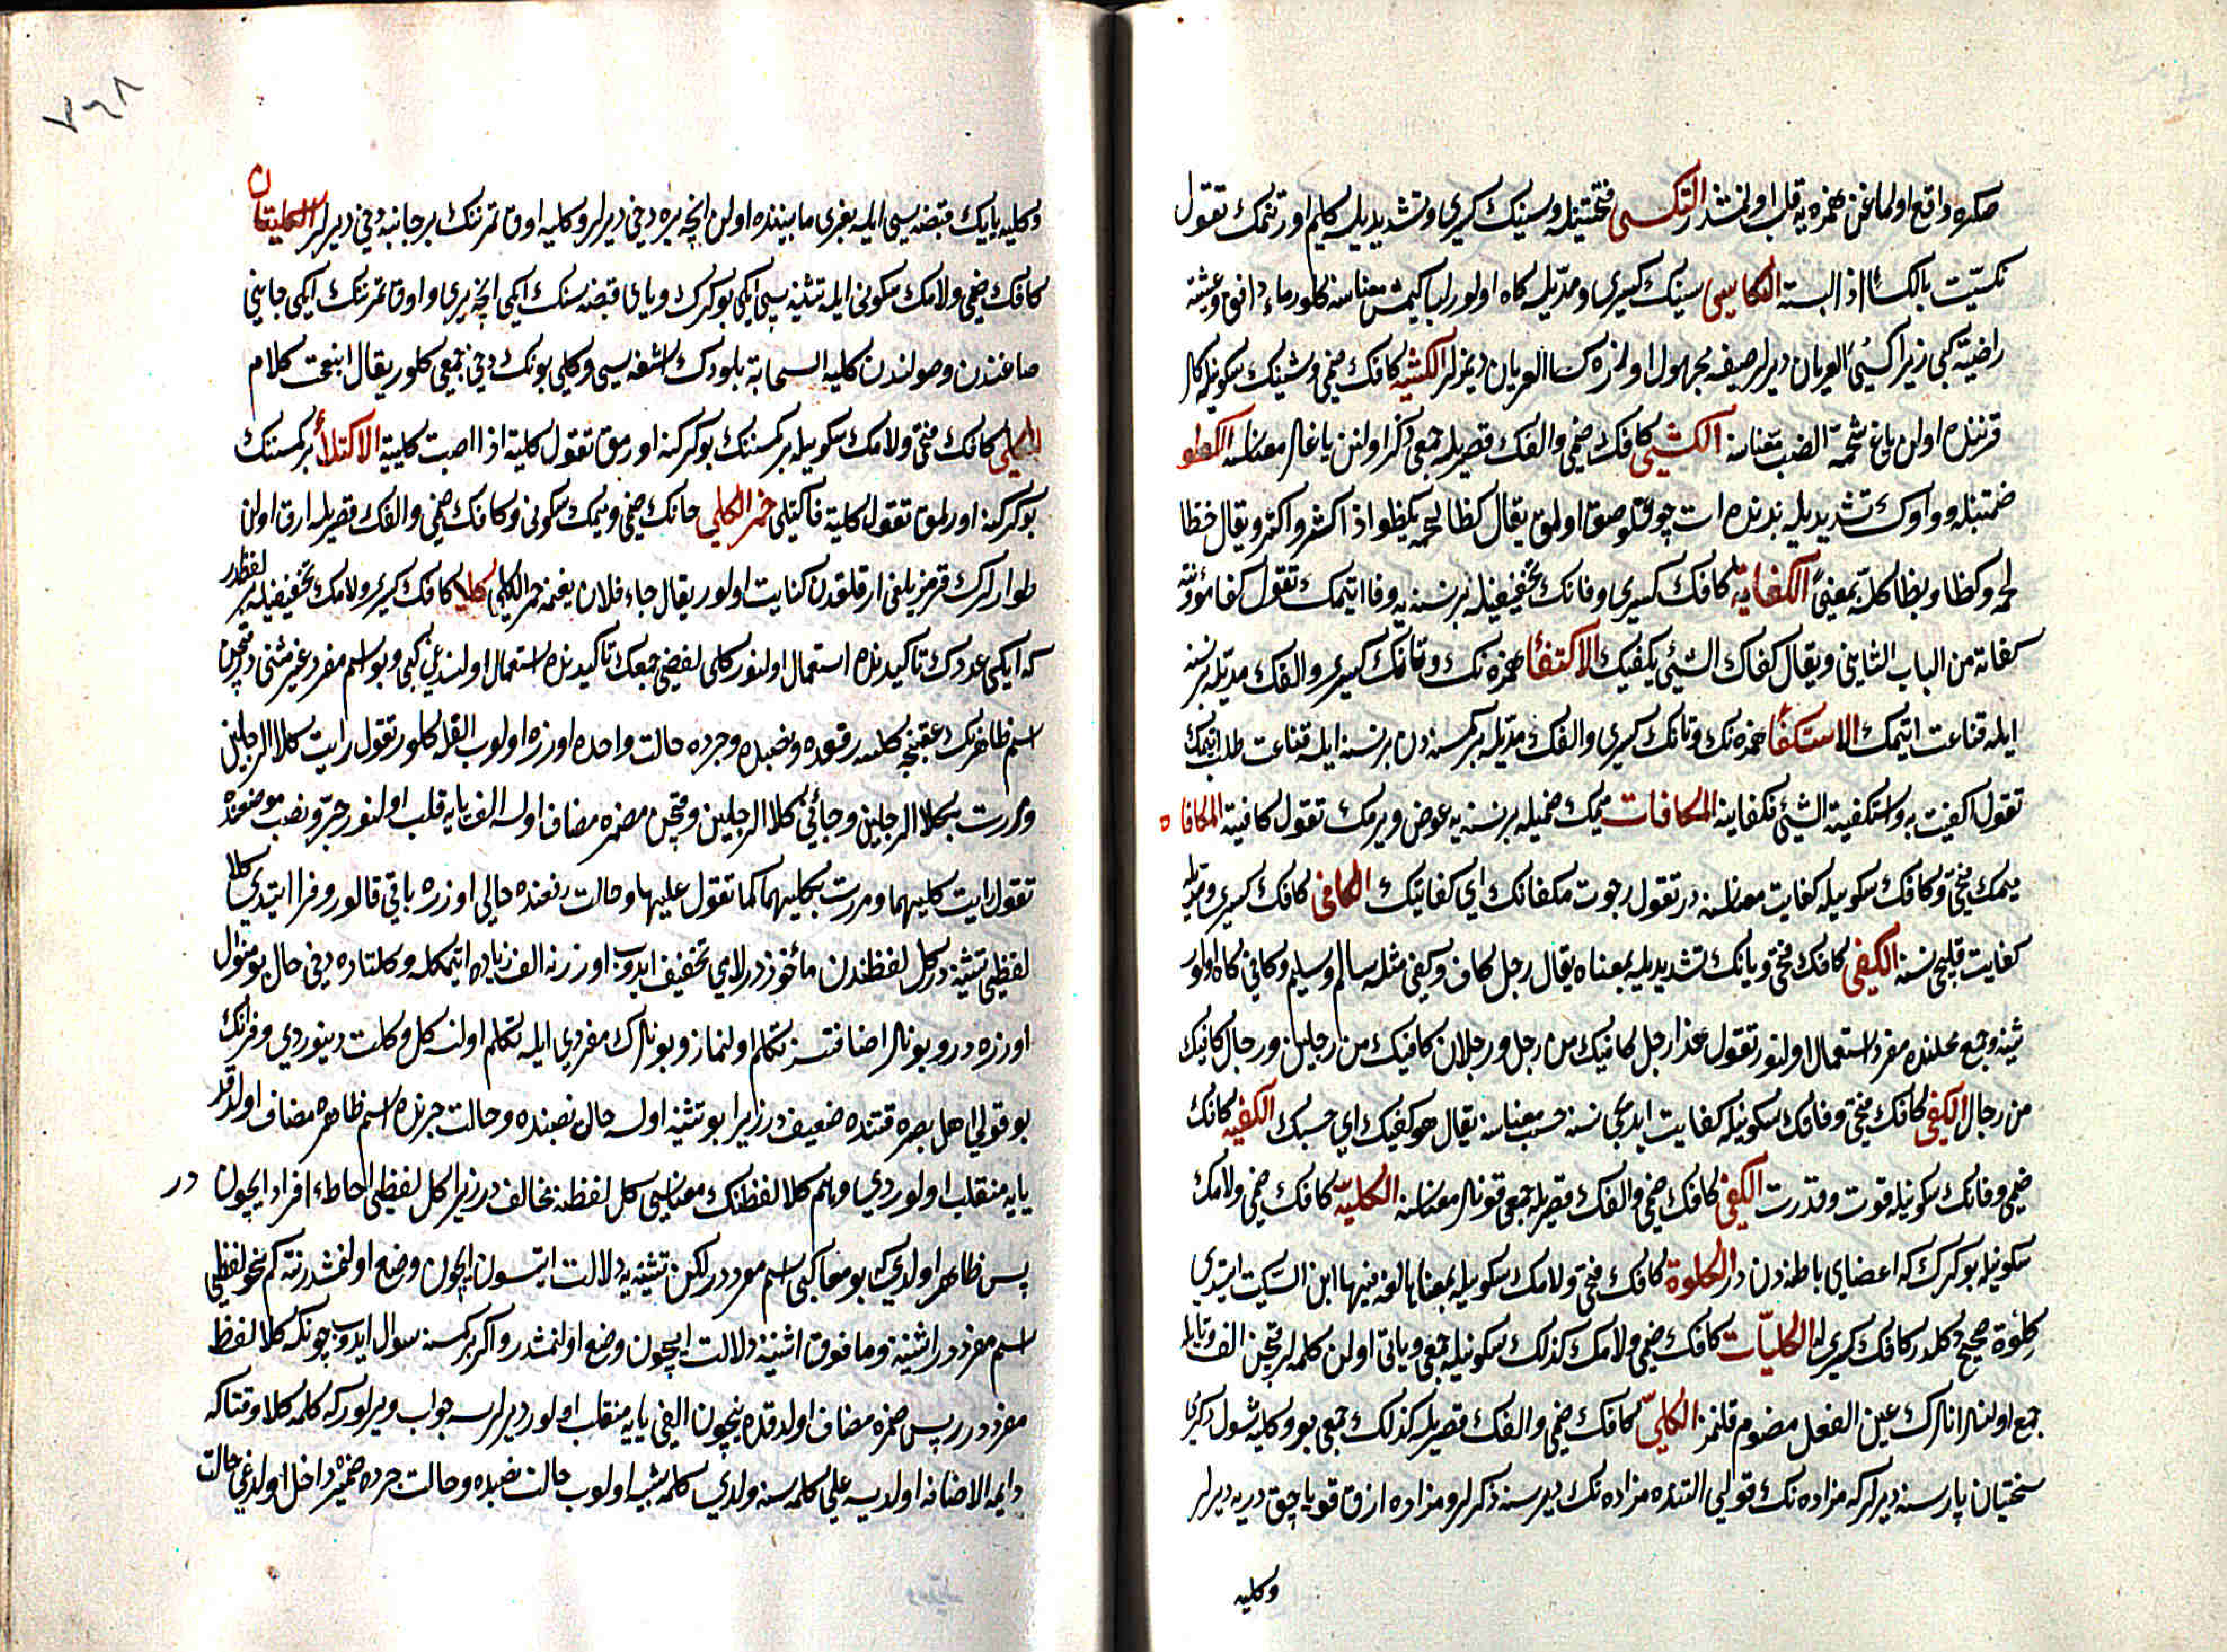 صكره واقع اولماغن همزه يه قلب اولنمشدر التكسى فتحتينله وسينك كسرى وتشديديله كليم اورتنمك تقول
تكسيت بالكسا اذا لبسته الكاسى سينك كسرى ومديله كاه اولور لباس كيمش معناسنه كلور ماء دافق وعيشة
راضية كبى زيرا كسى العريان ديرلر صيغه مجهول اوزره كسا العريان ديمزلر الكشيه كافك ضمى وشينك سكونيله كلر
قرننده اولن ياغ شحمة الضب معناسنه الكشى كافك ضمى والفك قصريله جمعى ذكر اولنن ياغلر معناسنه الكظو
ضمتينله وواوك تشديديله بدنده ات چوقلوصق اولمق يقال كظا لحمه يكظو اذا كثر واكتنز ويقال خظا
لحمه وكظا وبظا كله بمعنى الكفاية كافك كسرى وفانك تخفيفيله برنسنه يه وفا ايتمك تقول كفا مؤونته
كفاية من الباب الثانى ويقال كفاك الشئ يكفيك الاكتفأ همزه نك وتانك كسرى والفك مديله برنسنه
ايله قناعت ايتمك الاستكفأ همزه نك وتانك كسرى والفك مديله بر كمسه دن برنسنه ايله قناعت طلب ايتمك
تقول اكتفيت به واستكفيته الشئ فكفانيه المكافات ميمك ضميله برنسنه يه عوض ويرمك تقول كافيته المكفاة
ميمك فتحى وكافك سكونيله كفايت معناسنه در تقول رجوت مكفاتك اى كفايتك الكافى كافك كسرى ومديله
كفايت قليجى نسنه الكفى كافك فتحى ويانك تشديديله بمعناه يقال رجل كاف وكفى مثل سالم وسليم وكافى كاه اولور
تثنيه وجمع محلنده مفرد استعمال اولنور تقول هذا رجل كافيك من رجل ورجلان كافيك من رجلين ورجال كافيك
من رجال الكفى كافك فتحى وفانك سكونيله كفايت ايديجى نسنه حسب معناسنه يقال هو كفيك اى حسبك الكفيه كافك
ضمى وفانك سكونيله قوت وقدرت الكفى كافك ضمى والفك قصريله جمعى قوتلر معناسنه الكليه كافك ضمى ولامك
سكونيله بوكرك كه اعضاى باطنه دن در الكلوة كافك ضمى ولامك سكونيله بمعناها لغة فيها ابن السكيت ايتدى
كلوة صحيح دكلدر كافك كسرى له الكليات كافك ضمى ولامك كذلك سكونيله جمعى وياتى اولن كلمه لر قچن الف وتايله
جمع اولنسه انلرك عين الفعل مضموم قلنمز الكلى كافك ضمى والفك قصريله كذلك جمعى بو وكليه شول دكرى
سختيان پارسنه ديرلر كه مزاده نك قولپى التنده مزاده نك ديرسنه ذكرلر ومزاده ازق قوياجق دريه ديرلر
وكليه
٧٦٨
وكليه يايك قبضه سى ايله بغرى مابيننده اولن انجه يره دخى ديرلر وكليه اوق تمرننك بر جانبه دخى ديرلر الكليتان
كافك ضمى ولامك سكونى ايله تثنيه سى ايكى بوكرك وياى قبضه سنك ايكى انجه يرى واوق تمرننك ايكى جانبى
صاغندن وصولندن كليه السحابة بلودك اشغه سى وكلى بونك دخى جمعى كلور يقال انبعجت كلاه
الكلى كافك فتحى ولامك سكونيله بر كمسنك بوكركنه اورمق تقول كليته اذا اصبت كليته الاكتلأ بر كمسنك
بوكركنه اورلمق تقول كليته فاكتلى حمر الكلى حانك ضمى وميمك سكونى وكافك ضمى والفك قصريله ارق اولن
طوارلرك قرمزيلغى ارقلقدن كنايت اولور يقال جاء فلان بغنمه حمر الكلى كلا كافك كسرى ولامك تخفيفيله بر لفظدر
كه ايكى عددك تأكيدنده استعمال اولنور كلى لفظى جمعك تأكيدنده استعمال اولندغى كبى وبو اسم مفرد غير مثنى در قچن
اسم ظاهرك عقبنجه كلسه رفعده ونصبده وجرده حالت واحده اوزره اولوب الفله كلور تقول رايت كلا الرجلين
ومررت بكلا الرجلين وجائنى كلا الرجلين وقچن مضمره مضاف اولسه الف يايه قلب اولنور جر ونصب موضعنده
تقول رايت كليهما ومررت بكليهما كما تقول عليهما وحالت رفعنده حالى اوزره باقى قالور وفرا ايتدى كلا
لفظى تثنيه در كل لفظندن مأخوذدر لامى تخفيف ايدوب اوزرنه الف زياده ايتمكله وكلتاده دخى حال بو منوال
اوزره در وبونلر اضافتسز تكلم اولنماز وبونلرك مفردى ايله تكلم اولنسه كل وكلت دينوردى وفرانك
بو قولى اهل بصره قتنده ضعيفدر زيرا بو تثنيه اولسه حال نصبنده وحالت جرنده اسم ظاهره مضاف اولدقلر
يايه منقلب اولوردى وهم كلا لفظنك معناسى كل لفظنه مخالفدر زيرا كل لفظى احاطهء افراد ايچون در
پس ظاهر اولدى كه بو معا كبى اسم مفرددر لكن تثنيه يه دلالت ايتسون ايچون وضع اولنمشدر نته كم نحن لفظى
اسم مفرددر اثنينه وما فوق اثنينه دلالت ايچون وضع اولنمشدر واكر بر كمسنه سوال ايدوب چونكه كلا لفظ
مفرددر پس مضمره مضاف اولدقده نيچون الفى يايه منقلب اولور ديرلرسه جواب ويرلور كه كلمهء كلا وقتا كه
دايمه الاضافه اولديسه على كلمه سنه ولدى كلمه سنه شبيه اولوب حالت نصبده وحالت جرده ضميره داخل اولدغى حالت